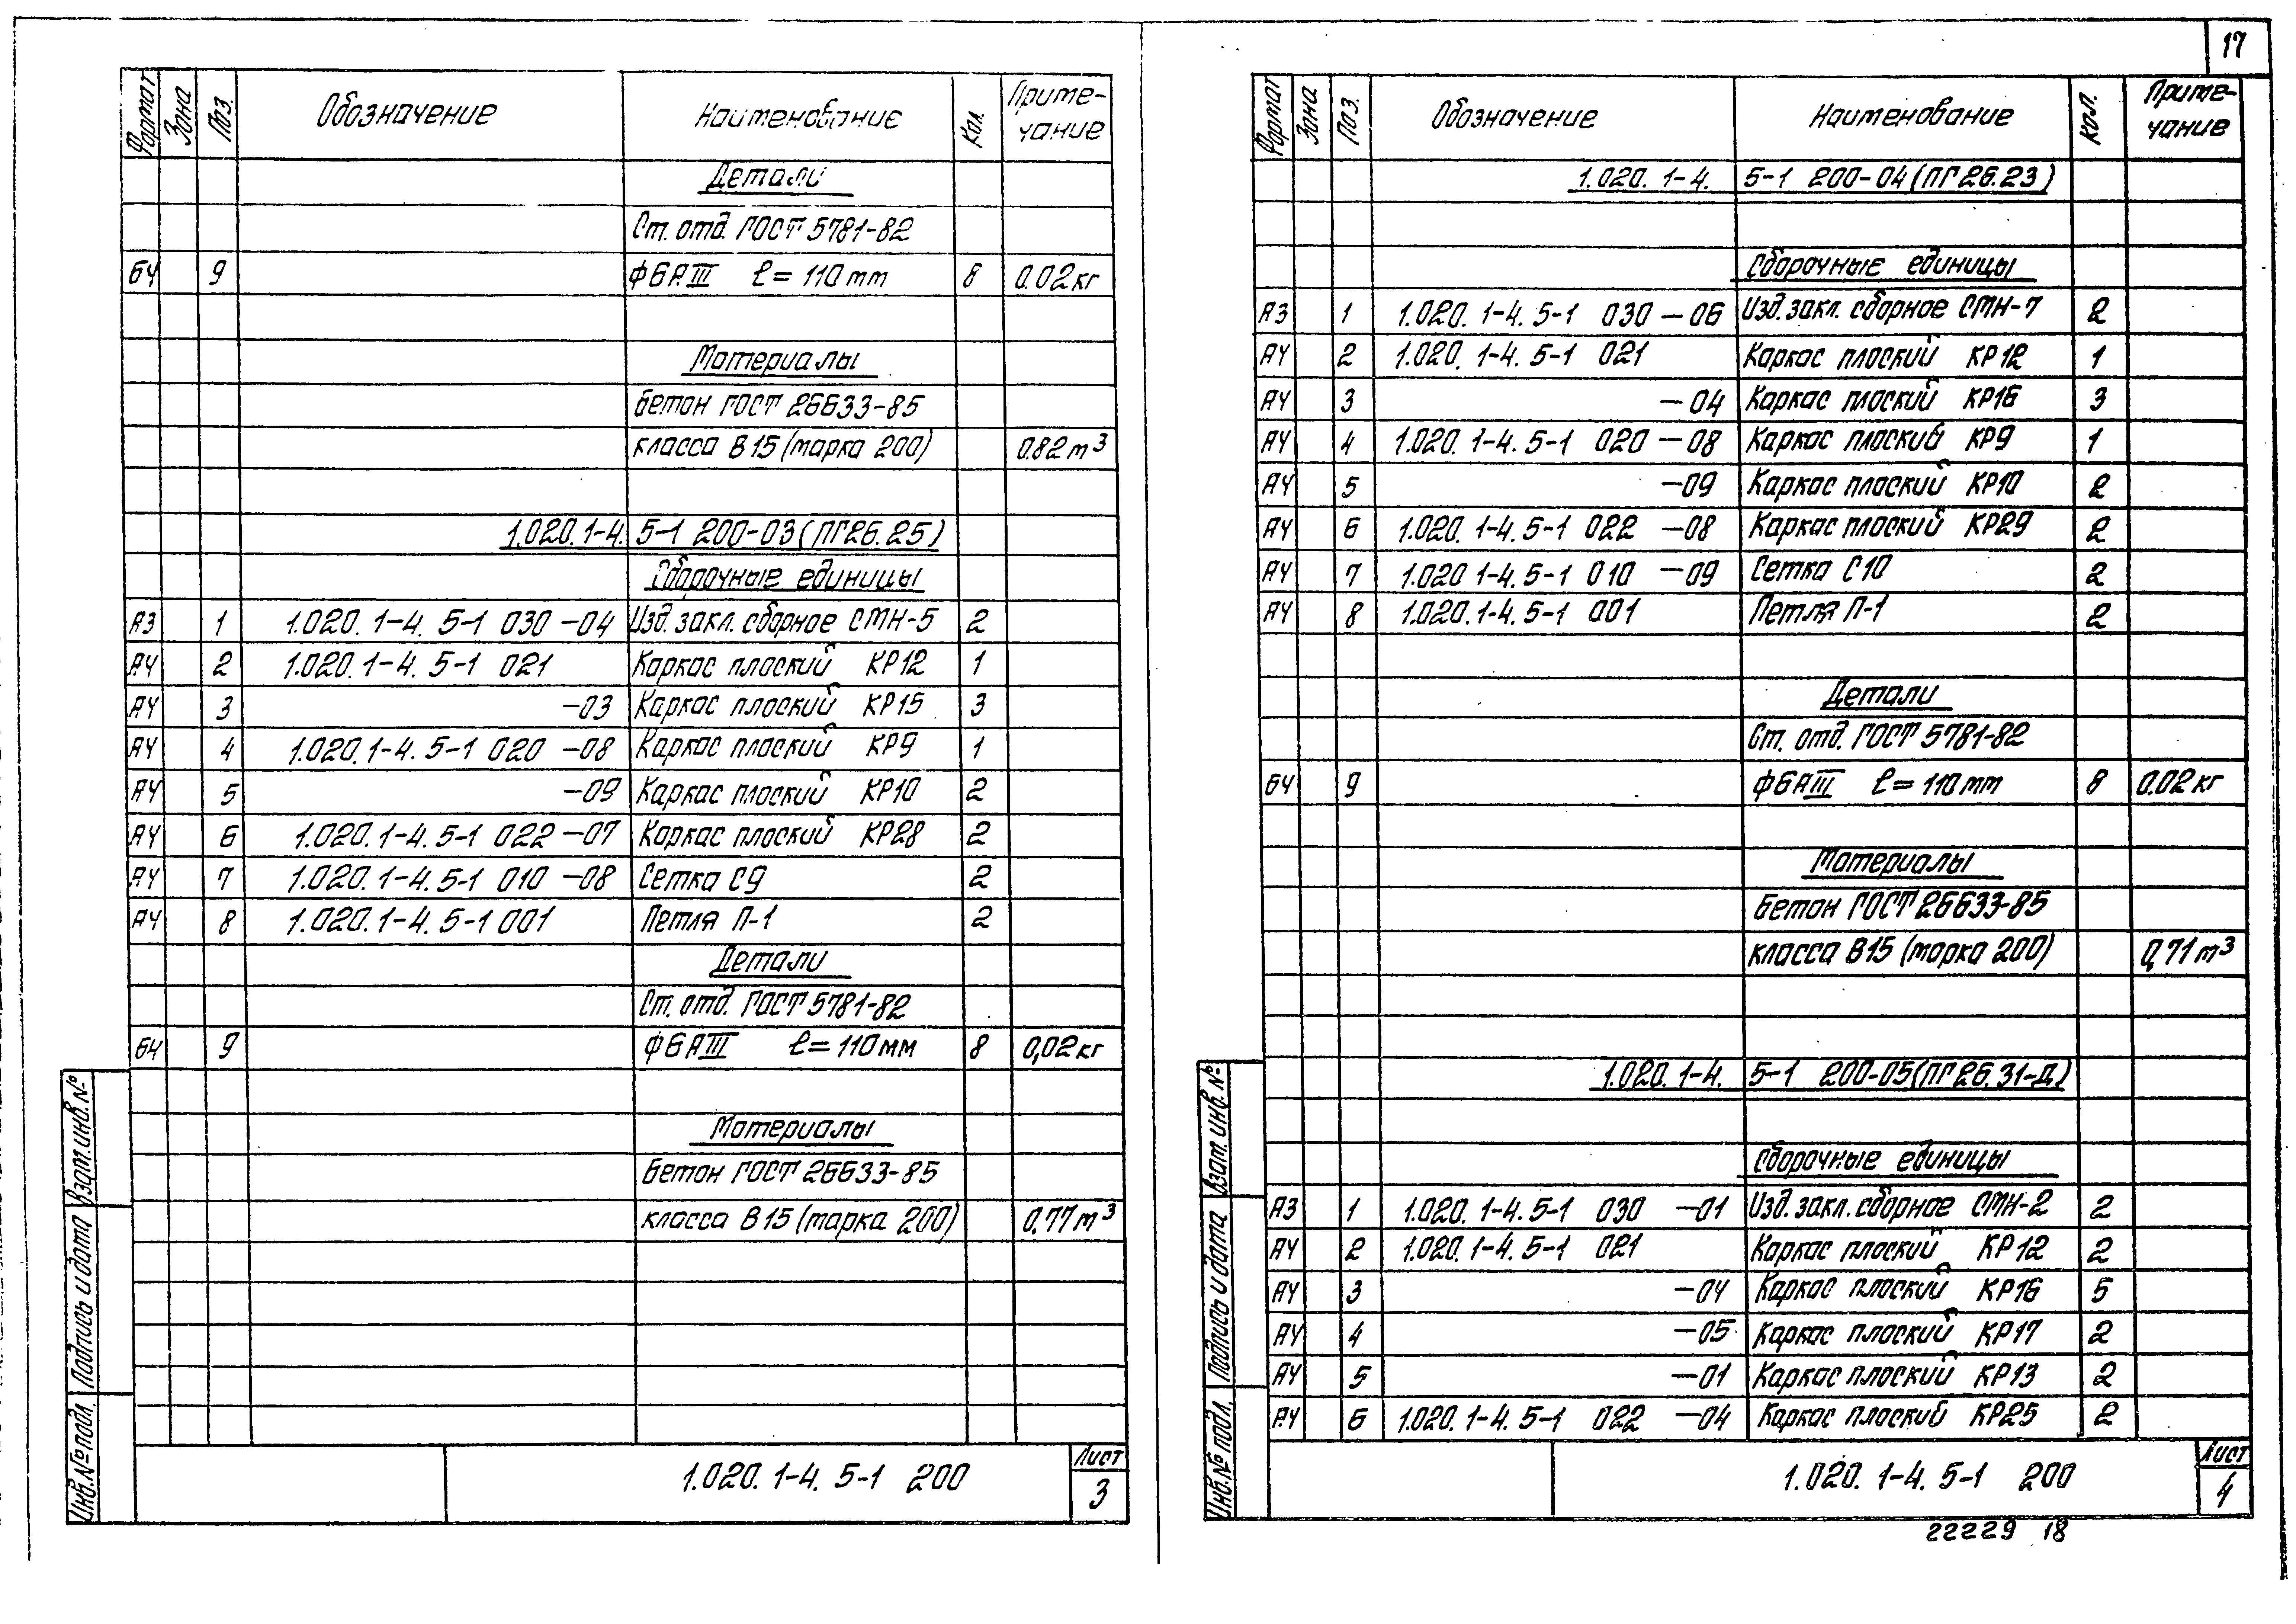 17
Формат Зона Поз. Обозначение Наименование Кол. Приме-
чание
Детали
Ст. отд. ГОСТ 5781-82
БЧ 9 ф6АIII ℓ= 110мм 8 0.02кг
Материалы
бетон ГОСТ 26633-85
класса В15 (марка 200) 0.82м³
1.020.1-4. 5-1 200-03 (ПГ26.25)
Сборочные единицы
А3 1 1.020.1-4. 5-1 030 -04 Изд. закл. сборное СМН-5 2
А4 2 1.020.1-4. 5-1 021 Каркас плоский КР12 1
А4 3 -03 Каркас плоский КР15 3
А4 4 1.020.1-4. 5-1 020 -08 Каркас плоский КР9 1
А4 5 -09 Каркас плоский КР10 2
А4 6 1.020.1-4. 5-1 022 -07 Каркас плоский КР28 2
А4 7 1.020.1-4. 5-1 010 -08 Сетка С9 2
А4 8 1.020.1-4. 5-1 001 Петля П-1 2
Детали
Ст. отд. ГОСТ 5781-82
БЧ 9 ф6АIII ℓ= 110мм 8 0,02кг
Материалы
бетон ГОСТ 26633-85
класса В15 (марка 200) 0,77м³
Инв.№ подл. Подпись и дата Взам.инв.№
1.020.1-4. 5-1 200
Лист
3
Формат Зона Поз. Обозначение Наименование Кол. Приме-
чание
1.020.1-4. 5-1 200-04 (ПГ26.23)
Сборочные единицы
А3 1 1.020.1-4. 5-1 030 -06 Изд. закл. сборное СМН-7 2
А4 2 1.020.1-4. 5-1 021 Каркас плоский КР12 1
А4 3 -04 Каркас плоский КР16 3
А4 4 1.020.1-4. 5-1 020 -08 Каркас плоский КР9 1
А4 5 -09 Каркас плоский КР10 2
А4 6 1.020.1-4. 5-1 022 -08 Каркас плоский КР29 2
А4 7 1.020 1-4. 5-1 010 -09 Сетка С10 2
А4 8 1.020.1-4. 5-1 001 Петля П-1 2
Детали
Ст. отд. ГОСТ 5781-82
БЧ 9 ф6АIII ℓ= 110мм 8 0.02кг
Материалы
бетон ГОСТ 26633-85
класса В15 (марка 200) 0,71м³
1.020.1-4. 5-1 200-05 (ПГ26.31-Д)
Сборочные единицы
А3 1 1.020.1-4. 5-1 030 -01 Изд. закл. сборное СМН-2 2
А4 2 1.020.1-4. 5-1 021 Каркас плоский КР12 2
А4 3 -04 Каркас плоский КР16 5
А4 4 -05 Каркас плоский КР17 2
А4 5 -01 Каркас плоский КР13 2
А4 6 1.020.1-4. 5-1 022 -04 Каркас плоский КР25 2
Инв.№ подл. Подпись и дата Взам.инв.№
1.020.1-4. 5-1 200
Лист
4
22229 18